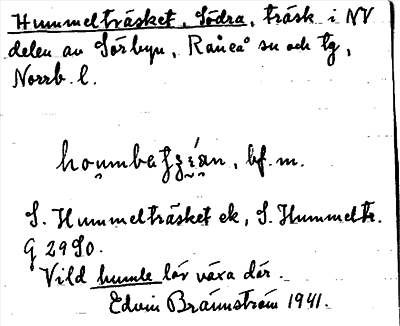 Hummelträsket, Södra, träsk i NV
delen av Sörbyn, Råneå sn och tg,
Norrb. l.
bf. m.
S. Hummelträsket ek, S. Hummeltr.
G 2990.
Vild humle lär växa där.
Edvin Brännström 1941.